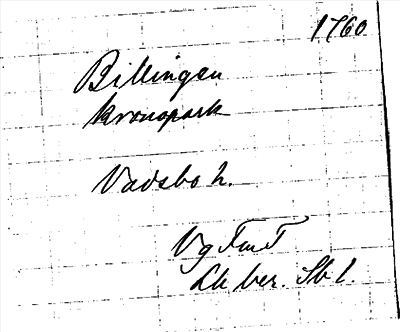 1760
Billingen
kronopark
Vadsbo h.
Vg FmT
Lh ber. Sb 1.